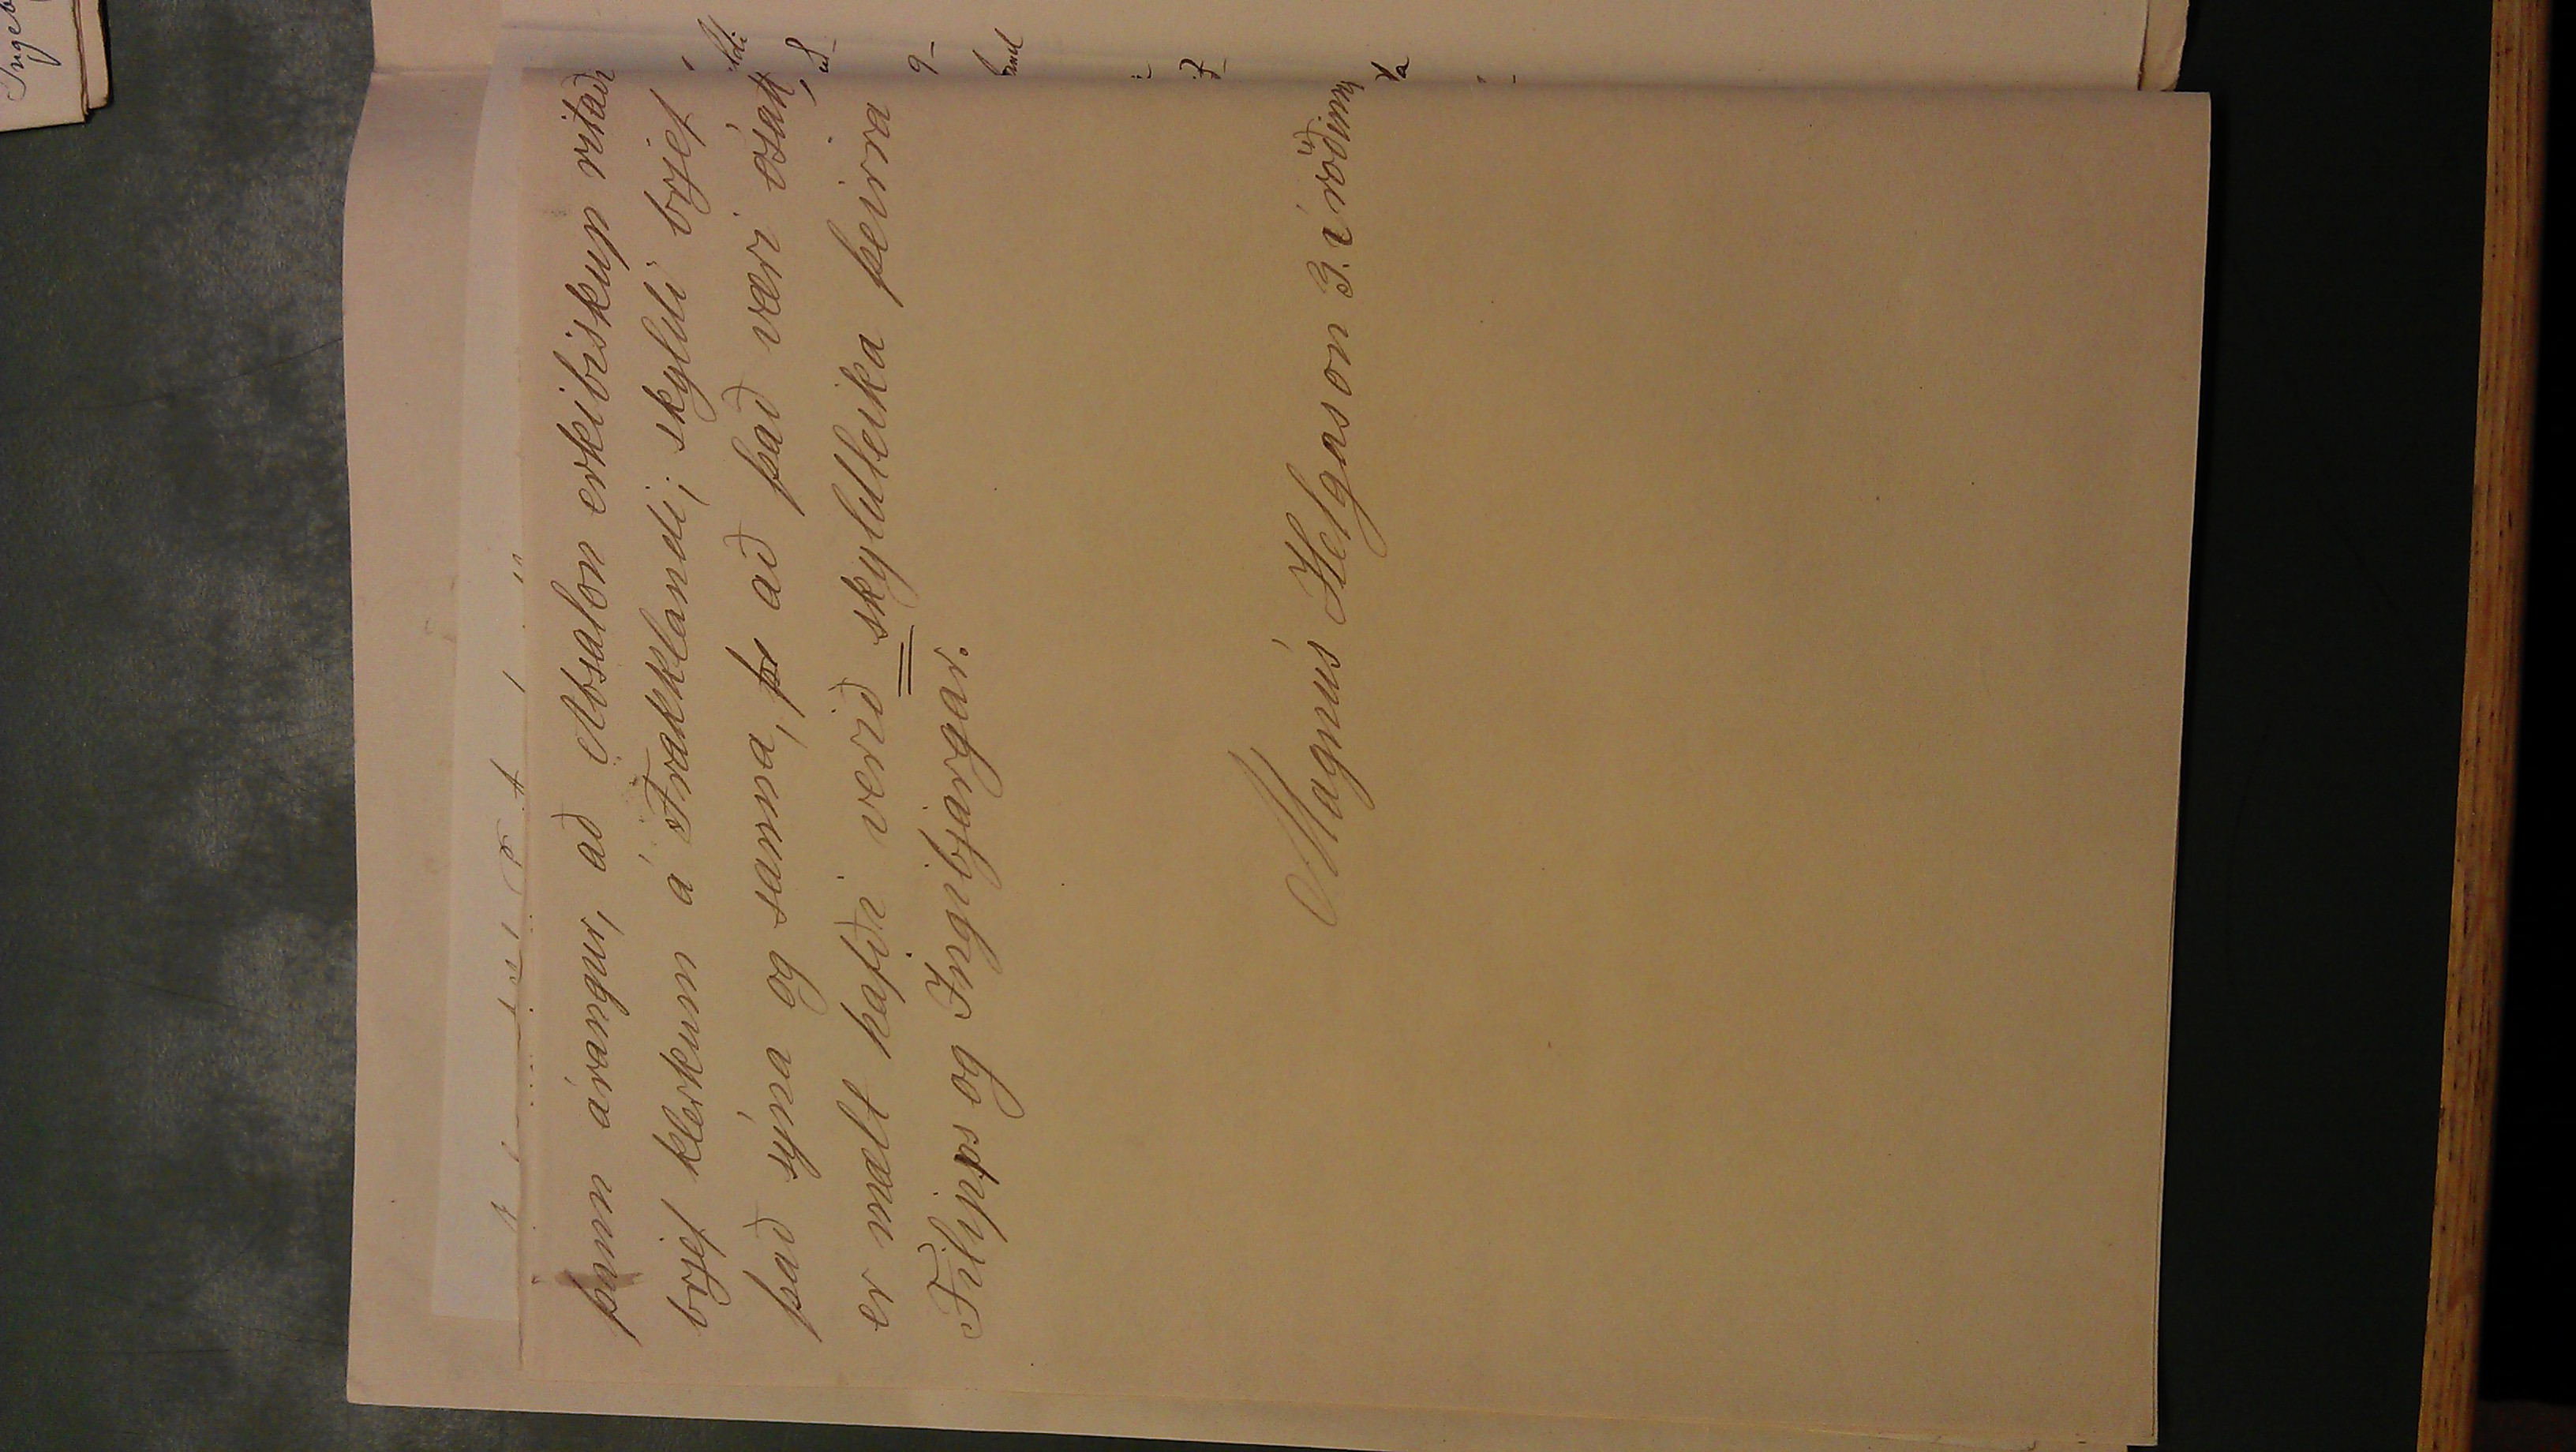 þann árangur, að Absalon erkibiskup ritaði
brjef klerkum á Frakklandi; skyldi brjef
það sýna og sanna, að það væri ósatt,
er mælt hafði verið skyldleika þeirra
Filipps og Ingibjargar.
Magnús Helgason 3. í röðinni